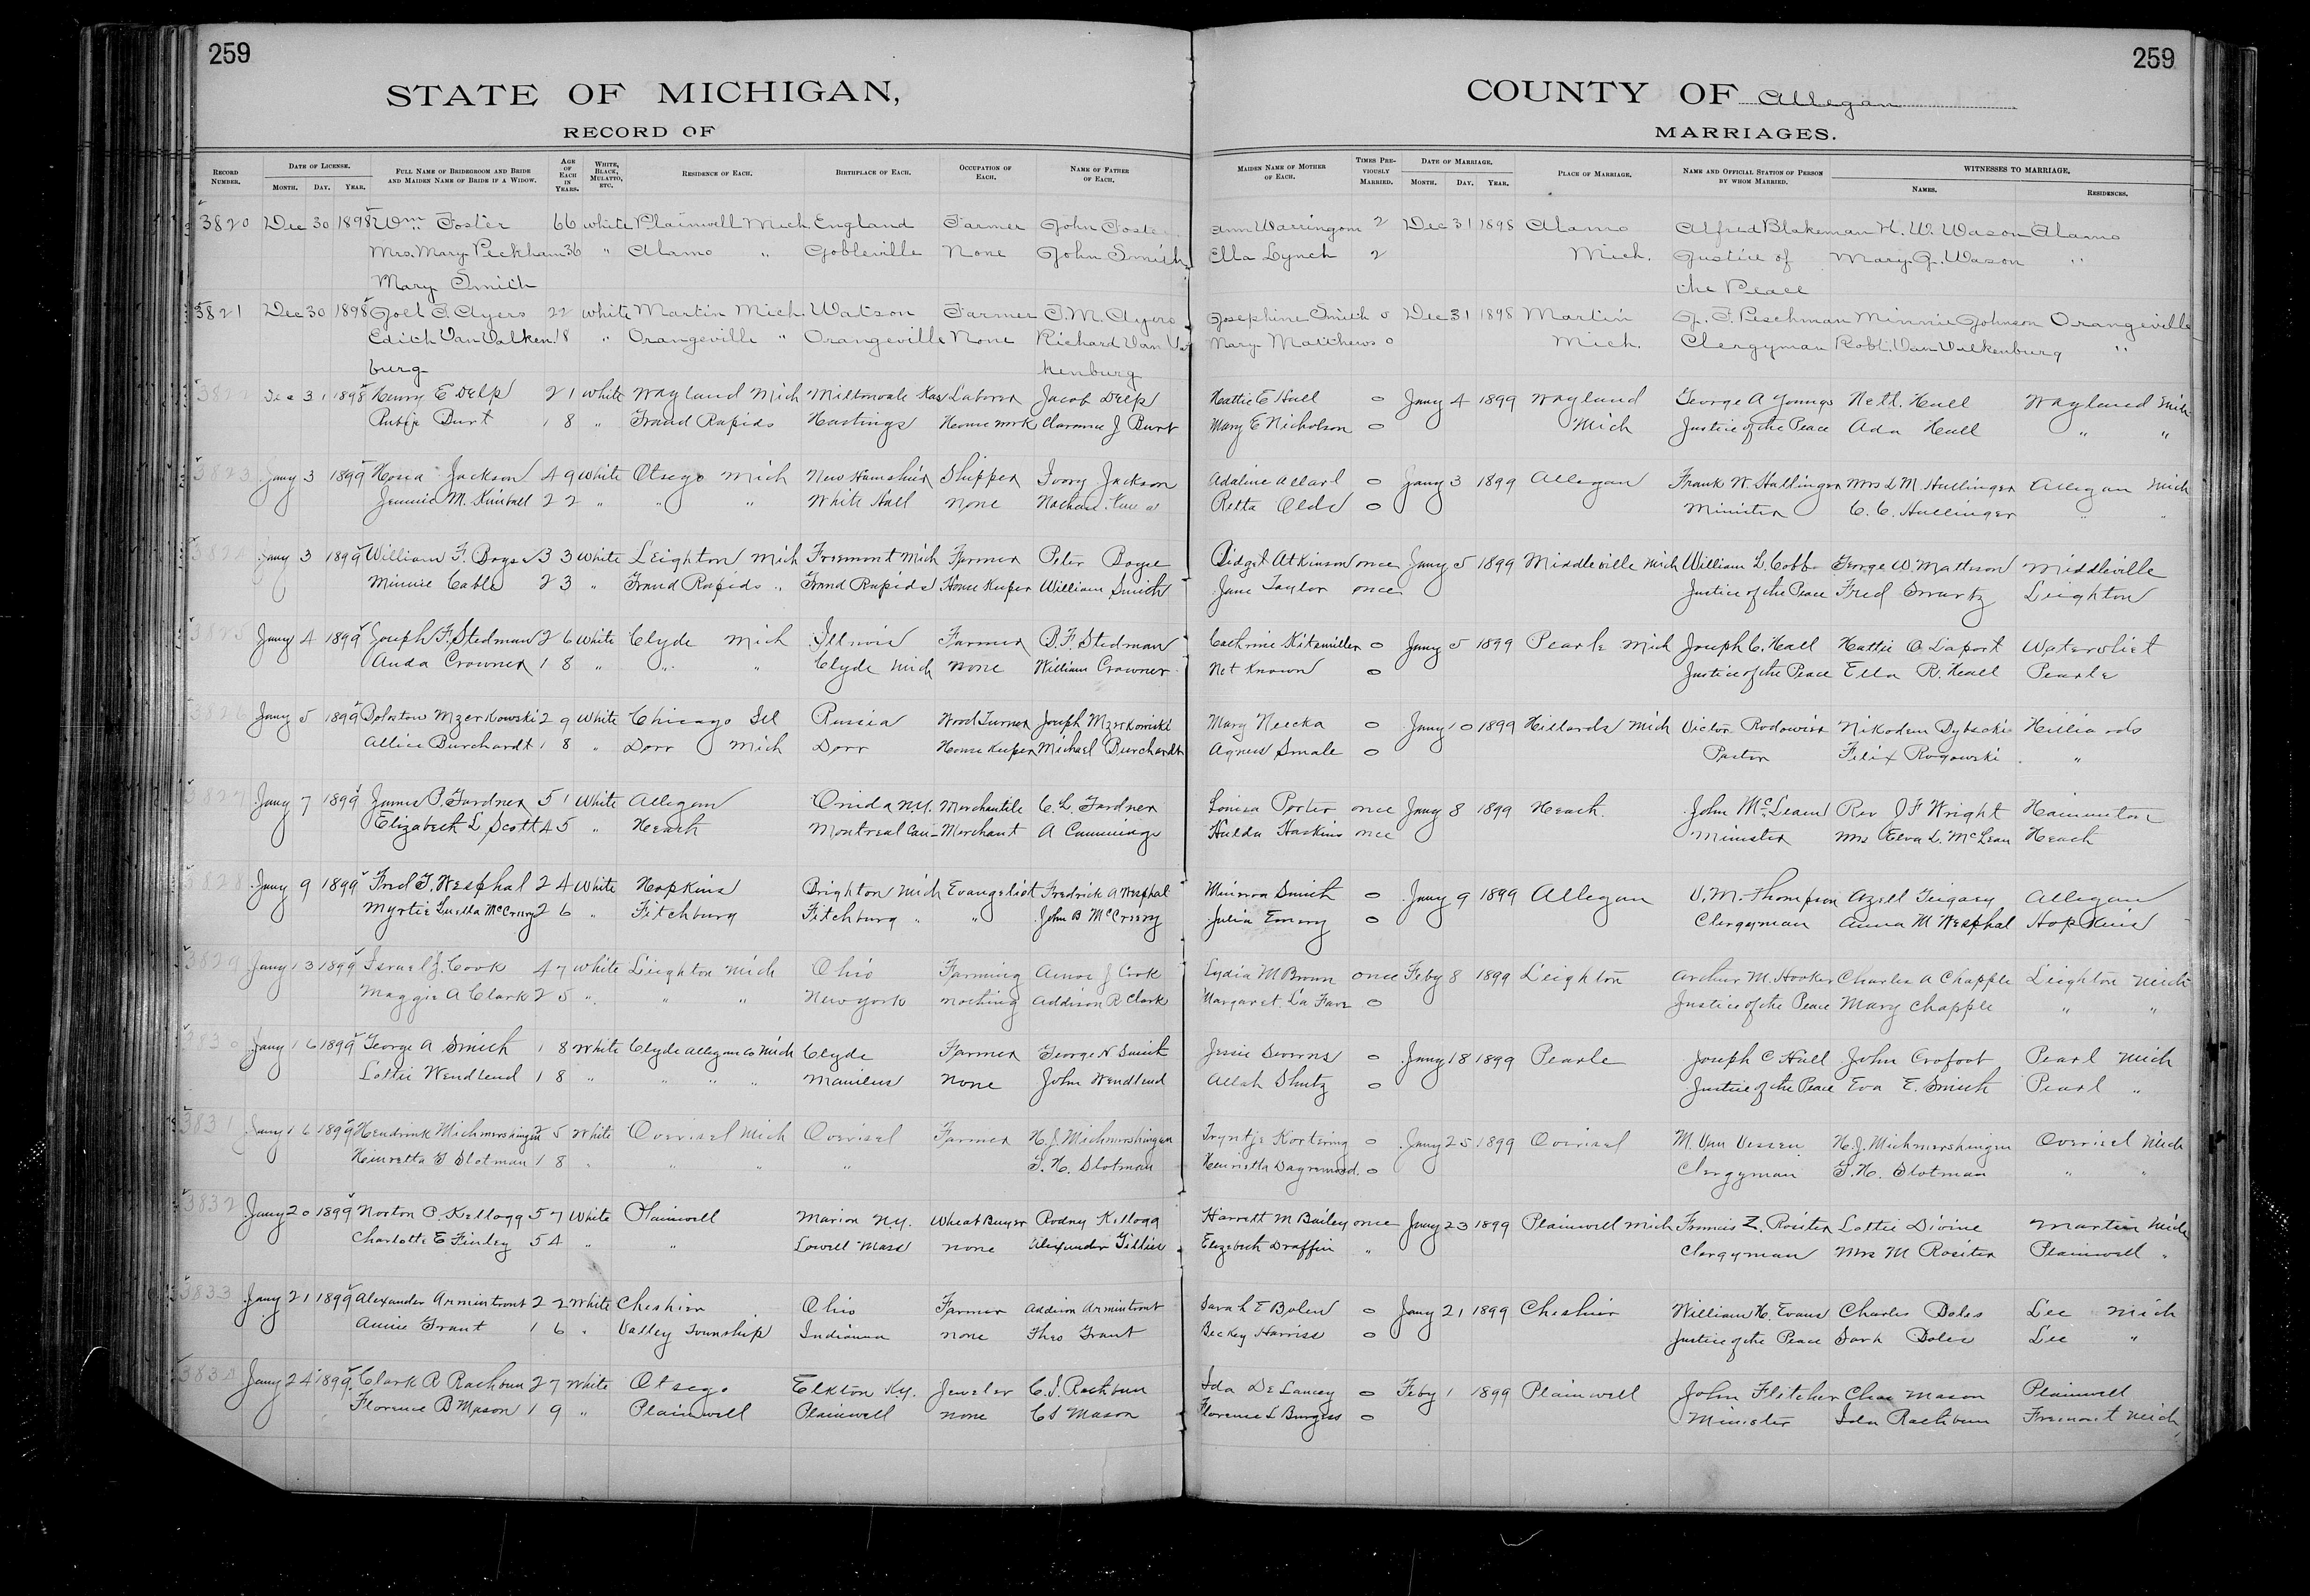 259
259
STATE OF MICHIGAN,
COUNTY OF Allegan
RECORD OF
MARRIAGES.
RECORD NUMBER. DATE OF LICENSE. MONTH. DAY. YEAR. FULL NAME OF BRIDEGROOM AND BRIDE AND MAIDEN NAME OF BRIDE IF A WIDOW. AGE OF EACH IN YEARS. WHITE, BLACK, MULATTO, ETC. RESIDENCE OF EACH. BIRTHPLACE OF EACH. OCCUPATION OF EACH. NAME OF FATHER OF EACH. MAIDEN NAME OF MOTHER OF EACH. TIMES PREVIOUSLY MARRIED. DATE OF MARRIAGE. MONTH. DAY. YEAR. PLACE OF MARRIAGE. NAME AND OFFICIAL STATION OF PERSON BY WHOM MARRIED. WITNESSES TO MARRIAGE. NAMES. RESIDENCES.
3820 Dec 30 1898 Wm Foster 66 White Plainwell Mich England Farmer John Foster Ann Warringom 2 Dec 31 1898 Alamo Alfred Blakeman H. W. Wason Alamo
Mrs. Mary Peckham 36 " Alamo " Gobleville None John Smith Ella Lynch 2 Mich. Justice of Mary J. Wason "
Mary Smith the Peace
3821 Dec 30 1898 Joel F. Ayers 22 White Martin Mich Watson Farmer F. M. Ayers Josephine Smith 0 Dec 31 1898 Martin Peschman Minnie Johnson Orangeville
Edith Van Valken 18 " Orangeville " Orangeville None Richard Van Mary Matthews 0 Mich. Clergyman Robt. Van Valkenburg "
burg kenburg
3822 Dec 31 1898 Henry E Delp 21 White Wayland Mich Miltonvale Kas Laborer Jacob Delp Hattie E Hull 0 Jany 4 1899 Wayland George A Youngs Nett. Hull Wayland Mich
Burt 18 " Grand Rapids Hastings House work Clarence J Burt Mary E Nicholson 0 Mich Justice of the Peace Ada Hull " "
3823 Jany 3 1899 Hosea Jackson 49 White Otsego Mich New Hamshire Shipper Ivory Jackson Adaline Allard 0 Jany 3 1899 Allegan Frank W. Hullinger Mrs L M. Hullinger Allegan Mich
Jennie M. Kimball 22 " " " White Hall None Retta Olds 0 Minister C. C. Hullinger " "
3824 Jany 3 1899 William F. Boyse 33 White Leighton Mich Freemont Mich Farmer Peter Boyse Bidget Atkinson once Jany 5 1899 Middleville Mich William L. Cobb George W Matteson Middleville
Minnie Cable 23 " Grand Rapids " Grand Rapids House Keeper William Smith Jane Taylor once Justice of the Peace Fred Swartz Leighton
3825 Jany 4 1899 Joseph F. Stedman 26 White Clyde Mich Illinois Farmer B. F. Stedman Cathrine Kitzmiller 0 Jany 5 1899 Pearle Mich Joseph C. Hall Hattie O Laport Watervliet
Auda Crowner 18 " " " Clyde Mich None William Crowner Not Known 0 Justice of the Peace Ella R. Hall Pearle
3826 Jany 5 1899 Boleston Mzerkowski 29 White Chicago Ill Russia Wood Turner Joseph Mzerkowski Mary Neecka 0 Jany 10 1899 Hillards Mich Victor Nikodem Dybecki Hilliards
Allice Burchardt 18 " Dorr Mich Dorr House Keeper Michael Burchardt Agnus Smale 0 Pastor Felix Rogowski "
3827 Jany 7 1899 James P. Gardner 51 White Allegan Onida N.Y. Merchantile C. L. Gardner Louisa Porter once Jany 8 1899 Heath John McLean Rev J F Wright Hamilton
Elizabeth L Scott 45 " Heath Montreal Can Merchant A Cummings Hulda Haskins once Minister Mrs Elva L. McLean Heath
3828 Jany 9 1899 Fred G. Wesphal 24 White Hopkins Brighton Mich Evangelist Fredrick A Wesphal Minerva Smith 0 Jany 9 1899 Allegan V. M. Thompson Azell Allegan
Myrtie Luella McCreery 26 " Fitchburg Fitchburg " " John B McCreery Julia Emery 0 Clergyman Anna M Wesphal Hopkins
3829 Jany 13 1899 Israel J. Cook 47 White Leighton Mich Ohio Farming Amos J Cook Lydia M Brown once Feby 8 1899 Leighton Archer M. Hooker Charles A Chapple Leighton Mich
Maggie A Clark 25 " " " New York nothing Addison R Clark Margaret La Fave 0 Justice of the Peace Mary Chapple " "
3830 Jany 16 1899 George A Smith 18 White Clyde Allegan Co Mich Clyde Farmer George N Smith Jessie 0 Jany 18 1899 Pearle Joseph C Hall John Crofoot Pearl Mich
Lottie Wendlend 18 " " " " Manlius None John Wendlend Allah Shutz 0 Justice of the Peace Eva E. Smith Pearl "
3831 Jany 16 1899 Hendrick Michmershuizen 25 White Overisel Mich Overisel Farmer H. J. Michmershuizen Tryntje Kortering 0 Jany 25 1899 Overisel M. Van Vessen H. J. Michmershuizen Overisel Mich
Heinretta G Slotman 18 " " " " G. H. Slotman Henrietta 0 Clergyman G. H. Slotman " "
3832 Jany 20 1899 Norton P. Kellogg 57 White Plainwell Marion N.Y. Wheat Buyer Rodney Kellogg Harrett M Bailey once Jany 23 1899 Plainwell Mich Francis Z. Rositer Lottie Divine Martin Mich
Charlotte E Finley 54 " " Lowell Mass None Alexander Gillies Elizabeth Draffin " Clergyman Mrs M Rositer Plainwell "
3833 Jany 21 1899 Alexander Armintrout 22 White Cheshier Ohio Farmer Addison Armintrout Sarah E Bolen 0 Jany 21 1899 Cheshier William H. Evans Charles Doles Lee Mich
Annie Grant 16 " Valley Township Indianna None Theo Grant Beckey Harriss 0 Justice of the Peace Sarh Doles Lee "
3834 Jany 24 1899 Clark R Rathbun 27 White Otsego Elkton Ky. Jeweler C. S. Rathbun Ida De Lancey 0 Feby 1 1899 Plainwell John Fletcher Chas Mason Plainwell
Florence B Mason 19 " Plainwell Plainwell None C S Mason Florence L Burgess 0 Minister Ida Rathbun Fremont Mich